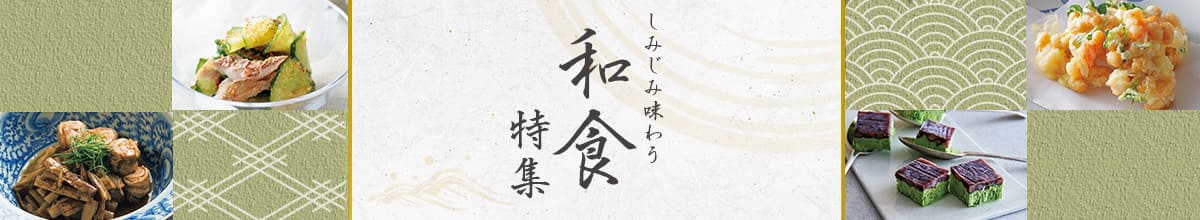 しみじみ味わう
和食
特集